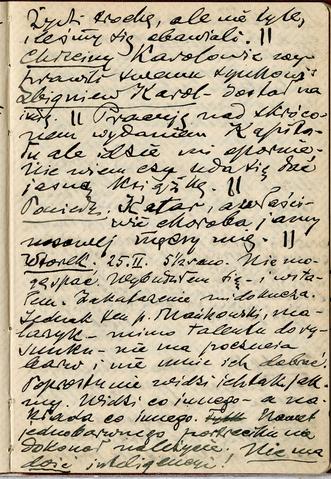 Żydzi trochę, ale nie tyle,
ileśmy się obawiali. ||
Chrzciny Karolowie wy-
prawili swemu synkowi.
Zbigniew Karol dostał na
imię. || Pracuję nad skróco-
nem wydaniem Kapita-
łu ale idzie mi opornie
nie wiem czy uda się dać
jasną książkę. ||
Poniedz. Katar, a właści-
wie choroba jamy
nosowej męczy mię. ||
Wtorek, 25.II. 5/rano. Nie mo-
gę spać. Wybudziłem się - i wsta-
łem. Zakatarzenie mi dokucza.
Jednak ten p. Maikowski, ma-
larzyk - mimo talentu do ry-
sunku - nie ma poczucia
barw i nie umie ich dobrać.
Poprostu nie widzi ich tak jak
my. Widzi co innego - a na-
kłada co innego. Nawet
jednobarwnego
dokonać należycie. Nie ma
dość inteligencji.